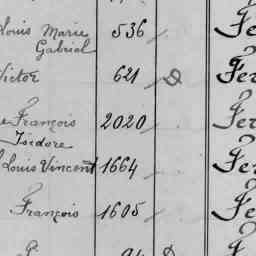 Louis Marie 536 Fe
Gabriel
Victor 621 D Fer
François 2020 Fer
Isidore
Louis Vincent 1664 Fer
François 1605 Fe